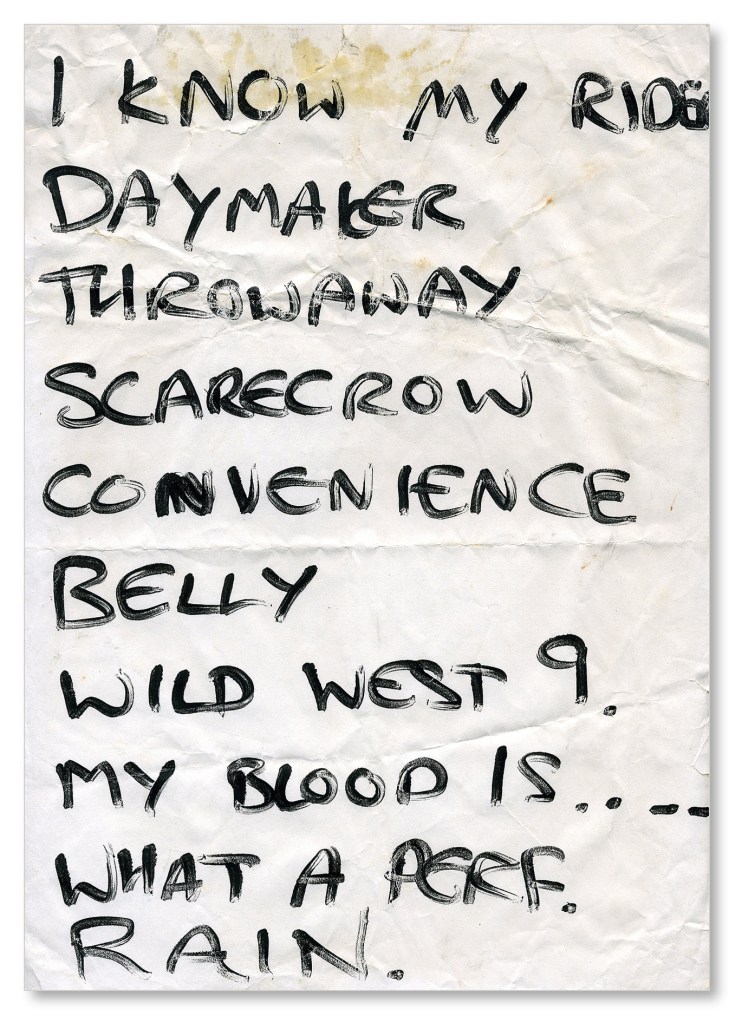 I KNOW MY RIDER
DAYMAKER
THROWAWAY
SCARECROW
CONVENIENCE
BELLY
WILD WEST 9.
MY BLOOD IS.....
WHAT A PERF.
RAIN.